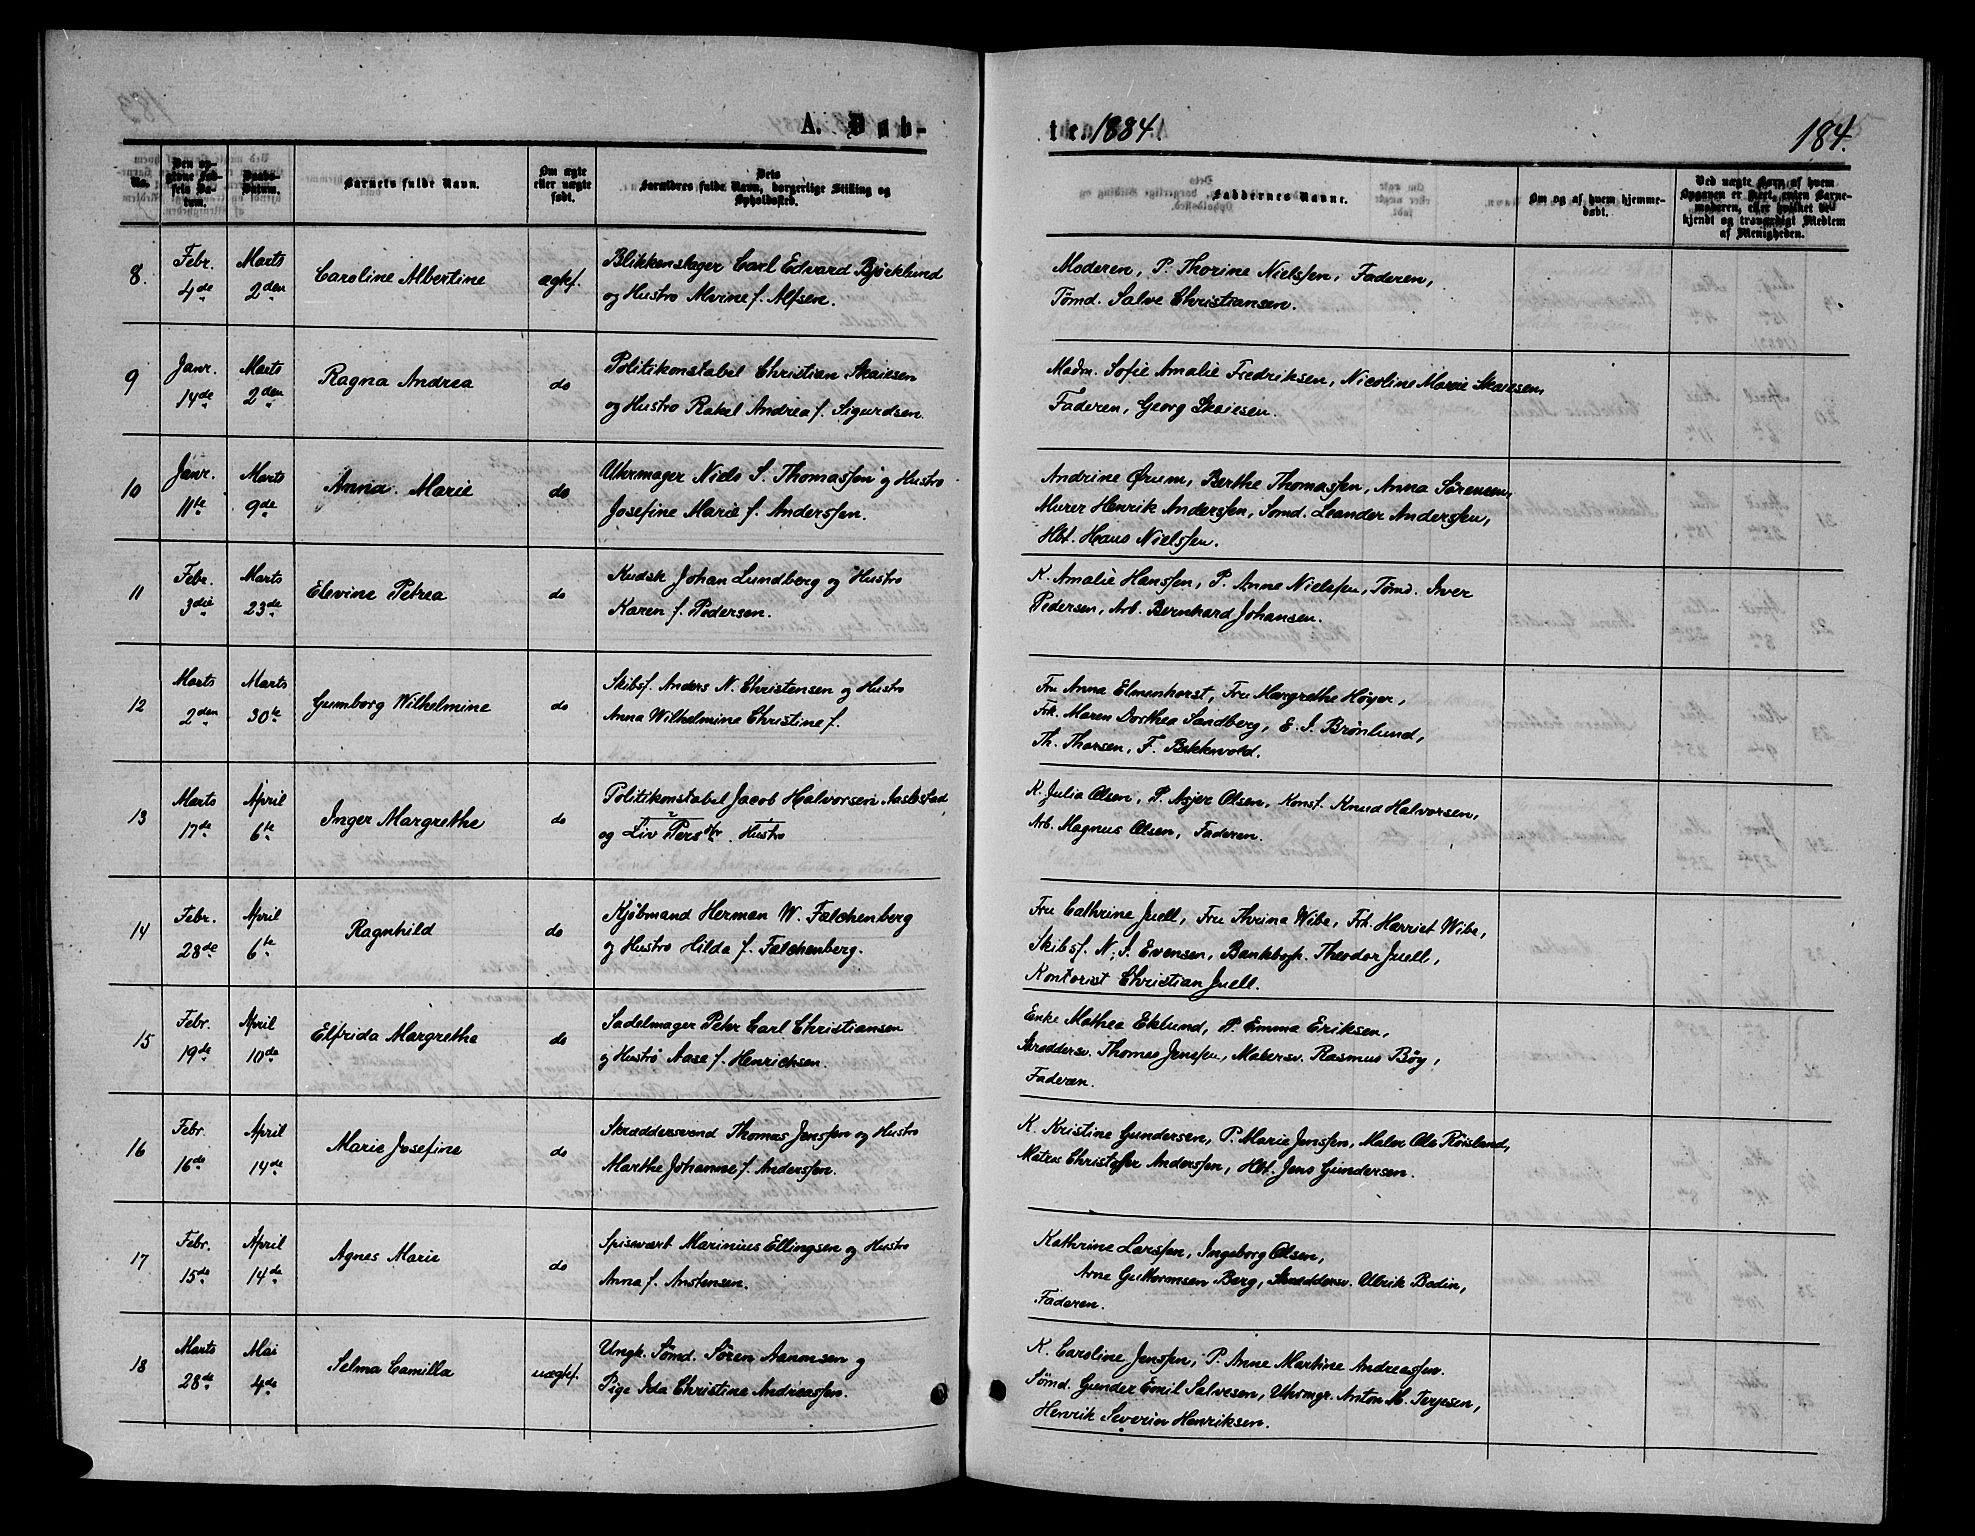 A. Døb-
te. 1884.
184.
No.
Den opgivne Fødsels Datum.
Daabs-Datum.
Barnets fulde Navn.
Om ægte eller uægte født.
Dets Forældres fulde Navn, borgerlige Stilling og Opholdssted.
Faddernes Navne.
Om og af hvem hjemmedøbt.
Ved uægte Børn af hvem Opgaven er skeet, enten Barnemoderen, eller hvilket bekjendt og troværdigt Medlem af Menigheden.
8. Febr. 4de Marts 2den Caroline Albertine ægte.
Blikkenslager Carl Edvard Bjørklund
og Hustro Alvine f. Alfsen.
Moderen, P. Thorine Nielssen, Faderen,
Tømd. Salve Christiansen.
9 Janr. 14de Marts 2den Ragna Andrea do
Politikonstabel Christian Skaiesen
og Hustro Rakel Andrea f. Sigurdsen.
Madm. Sofie Amalie Fredriksen, Nicoline Marie Skaiesen,
Faderen, Georg Skaiesen.
10 Janr. 11te Marts 9de Anna Marie do
Uhrmager Niels S. Thomassen og Hustro
Josefine Marie f. Anderssen.
Andrine Ørum, Berthe Thomassen, Anna Sørensen,
Murer Henrik Anderssen, Sømd. Leander Anderssen,
Hbt. Hans Nielssen.
11 Febr. 3die Marts 23de Elevine Petrea do
Kudsk Johan Lundberg og Hustro
Karen f. Pedersen.
K. Amalie Hanssen, P. Anne Nielssen, Tømd. Iver
Pedersen, Arb. Bernhard Johansen.
12 Marts 2den Marts 30te Gumborg Wilhelmine do
Skibsf. Anders N. Christensen og Hustro
Anna Wilhelmine Christine f.
Fru Anna Elmenhorst, Fru Margrethe Høyer,
Frk. Maren Dorthea Sandberg, E. I. Brønlund,
Th. Thorsen, F. Bekkevold.
13 Marts 17de April 6te Inger Margrethe do
Politikonstabel Jacob Halvorsen Aaslestad
og Liv Persdtr. Hustro
K. Julia Olsen, P. Asjer Olsen, Konst. Knud Halvorsen,
Arb. Magnus Olsen, Faderen.
14 Febr. 28de April 6te Ragnhild do
Kjøbmand Herman W. Falchenberg
og Hustro Hilda f. Falchenberg.
Fru Cathrine Juell, Fru Thrina Wibe, Frk. Harriet Wibe,
Skibsf. N. J. Evensen, Bankbogh. Theodor Juell,
Kontorist Christian Juell.
15 Febr. 19de April 10de Elfrida Margrethe do
Sadelmager Peter Carl Christiansen
og Hustro Aase f. Henrichsen.
Enke Mathea Eklund, P. Emma Eriksen,
Skreddersv. Thomas Jenssen, Malersv. Rasmus Bøy,
Faderen.
16 Febr. 16de April 14de Marie Josefine do
Skreddersvend Thomas Jenssen og Hustro
Marthe Johanne f. Anderssen.
K. Kristine Gundersen, P. Marie Jenssen, Maler Ole Røisland,
Matros Christofer Anderssen, Hbt. Jens Gundersen.
17 Febr. 15de April 14de Agnes Marie do
Spisevært Marinius Ellingsen og Hustro
Anna f. Anstensen.
Kathrine Larssen, Ingeborg Olsen,
Arne Guttormsen Berg, Skreddersv. Ulrik Bodin,
Faderen.
18 Marts 28de Mai 4de Selma Camilla uægte.
Ungk. Sømd. Søren Aanonsen og
Pige Ida Christine Andreassen.
K. Caroline Jenssen, P. Anne Martine Andreassen.
Sømd. Gunder Emil Salvesen, Uhrmgr. Anton M. Terjesen,
Henrik Severin Henriksen.